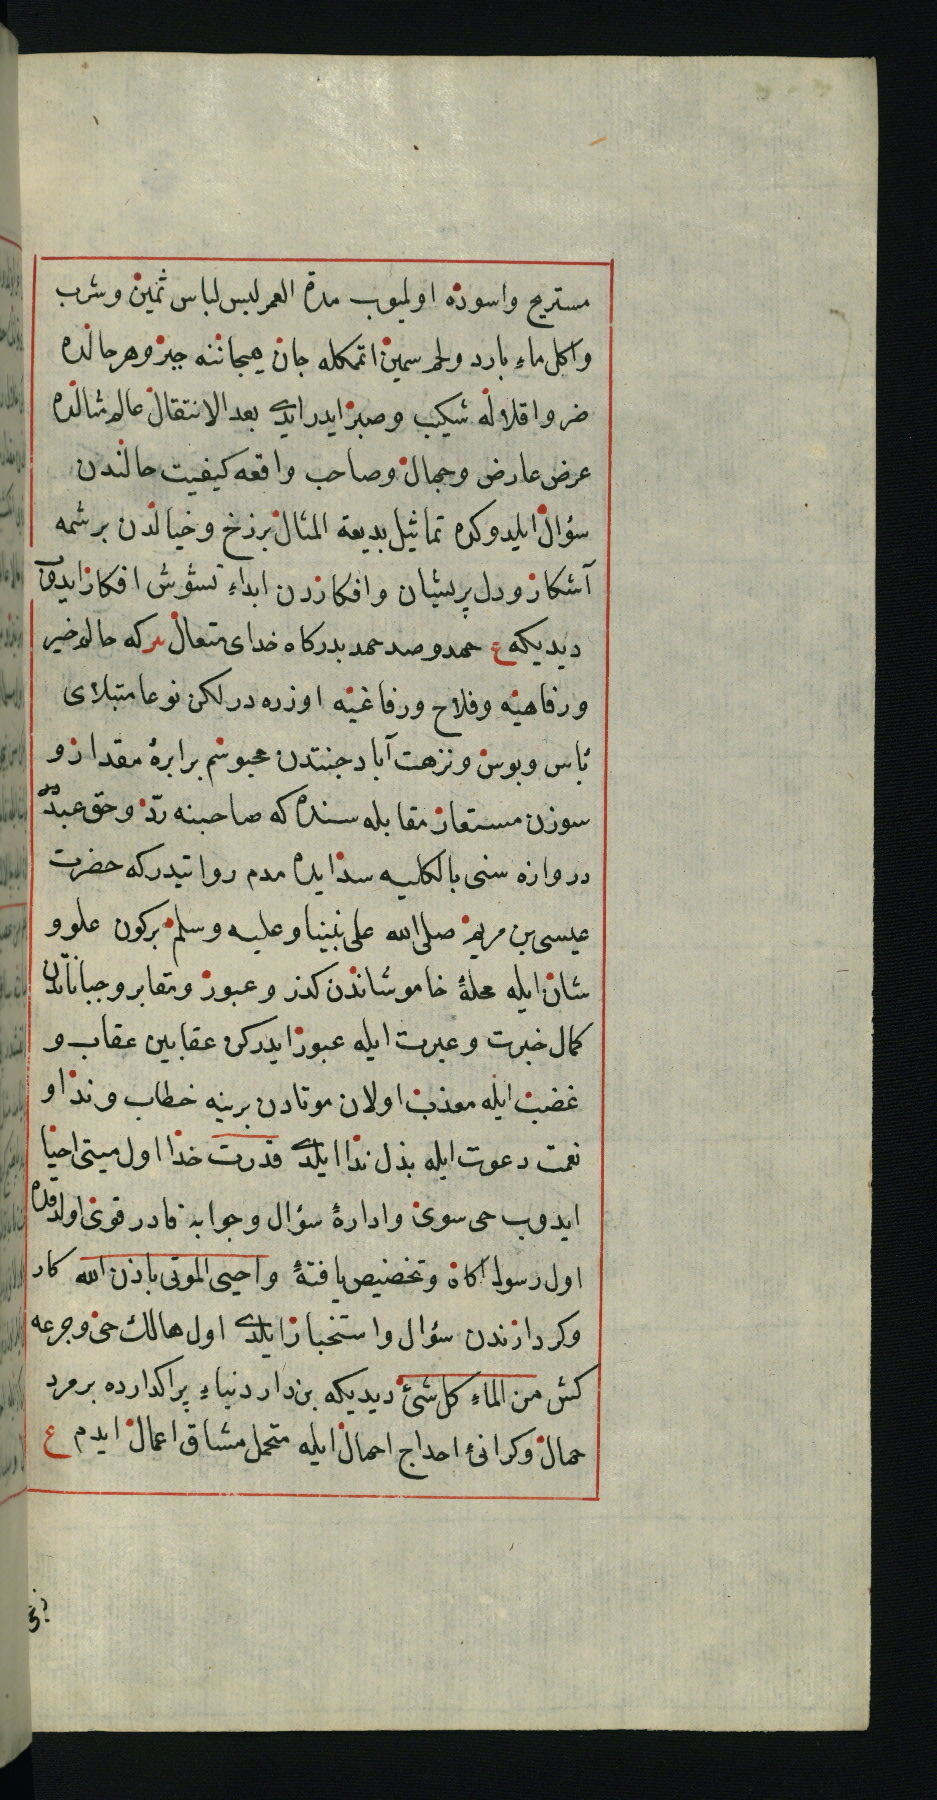 مستریح واسوده اولمیوب مدة العمر لبس لباس ثمین وشرب
واکل ماء بارد ولحم سمین اتمکله جان هیجاننه جبر وهر حالده
ضر واقلاله شکیب وصبر ایدر ایدی بعد الانتقال عالم مثالده
عرض عارض وجمال وصاحب واقعه کیفیت حالندن
سؤال ایلیدوکده تماثیل بدیعة المثال برزخ وخیالدن برشمه
آشکار ودل پریشیان وافکاردن ابداء تشوش افکار ایدوب
دیدیکه ع حمد وصد حمد بدرکاه خدای متعال که حالم خیر
ورفاهیه وفلاح ورفاغیه اوزره در لکن نوعا مبتلای
بأس وبوس ونزهت آباد جنتدن محبوسم برابرهٔ مقدار و
سوزن مستعار مقابله سنده که صاحبنه ردّ وحق عبدّ
دروازه سنی بالکلیه سد ایده مدم روایتدرکه حضرت
عیسی بن مریم صلی الله علی نبینا وعلیه وسلم برکون علو و
شان ایله محلهٔ خاموشاندن کذر وعبور ومقابر وجباناتدن
کمال خبرت وعبرت ایله عبور ایدرکن عقابین عقاب و
غضب ایله معذب اولان موتادن برینه خطاب وندا و
نعمت دعوت ایله بذل ندا ایلدی قدرت خدا اول میتی احیا
ایدوب حی سوی وادارهٔ سؤال وجوابه قادر قوی اولدقده
اول رسول اکاه وتخصیص یافتهٔ واحیی الموتی باذن الله کار
وکردارندن سؤال واستخبار ایلدی اول هالك حی وجرعه
کش من الماء کل شئ دیدیکه بن دار دنیاء پراکدارده بر مرد
حمال وکرانئ احداج احمال ایله متحمل مشاق اعمال ایدم ع